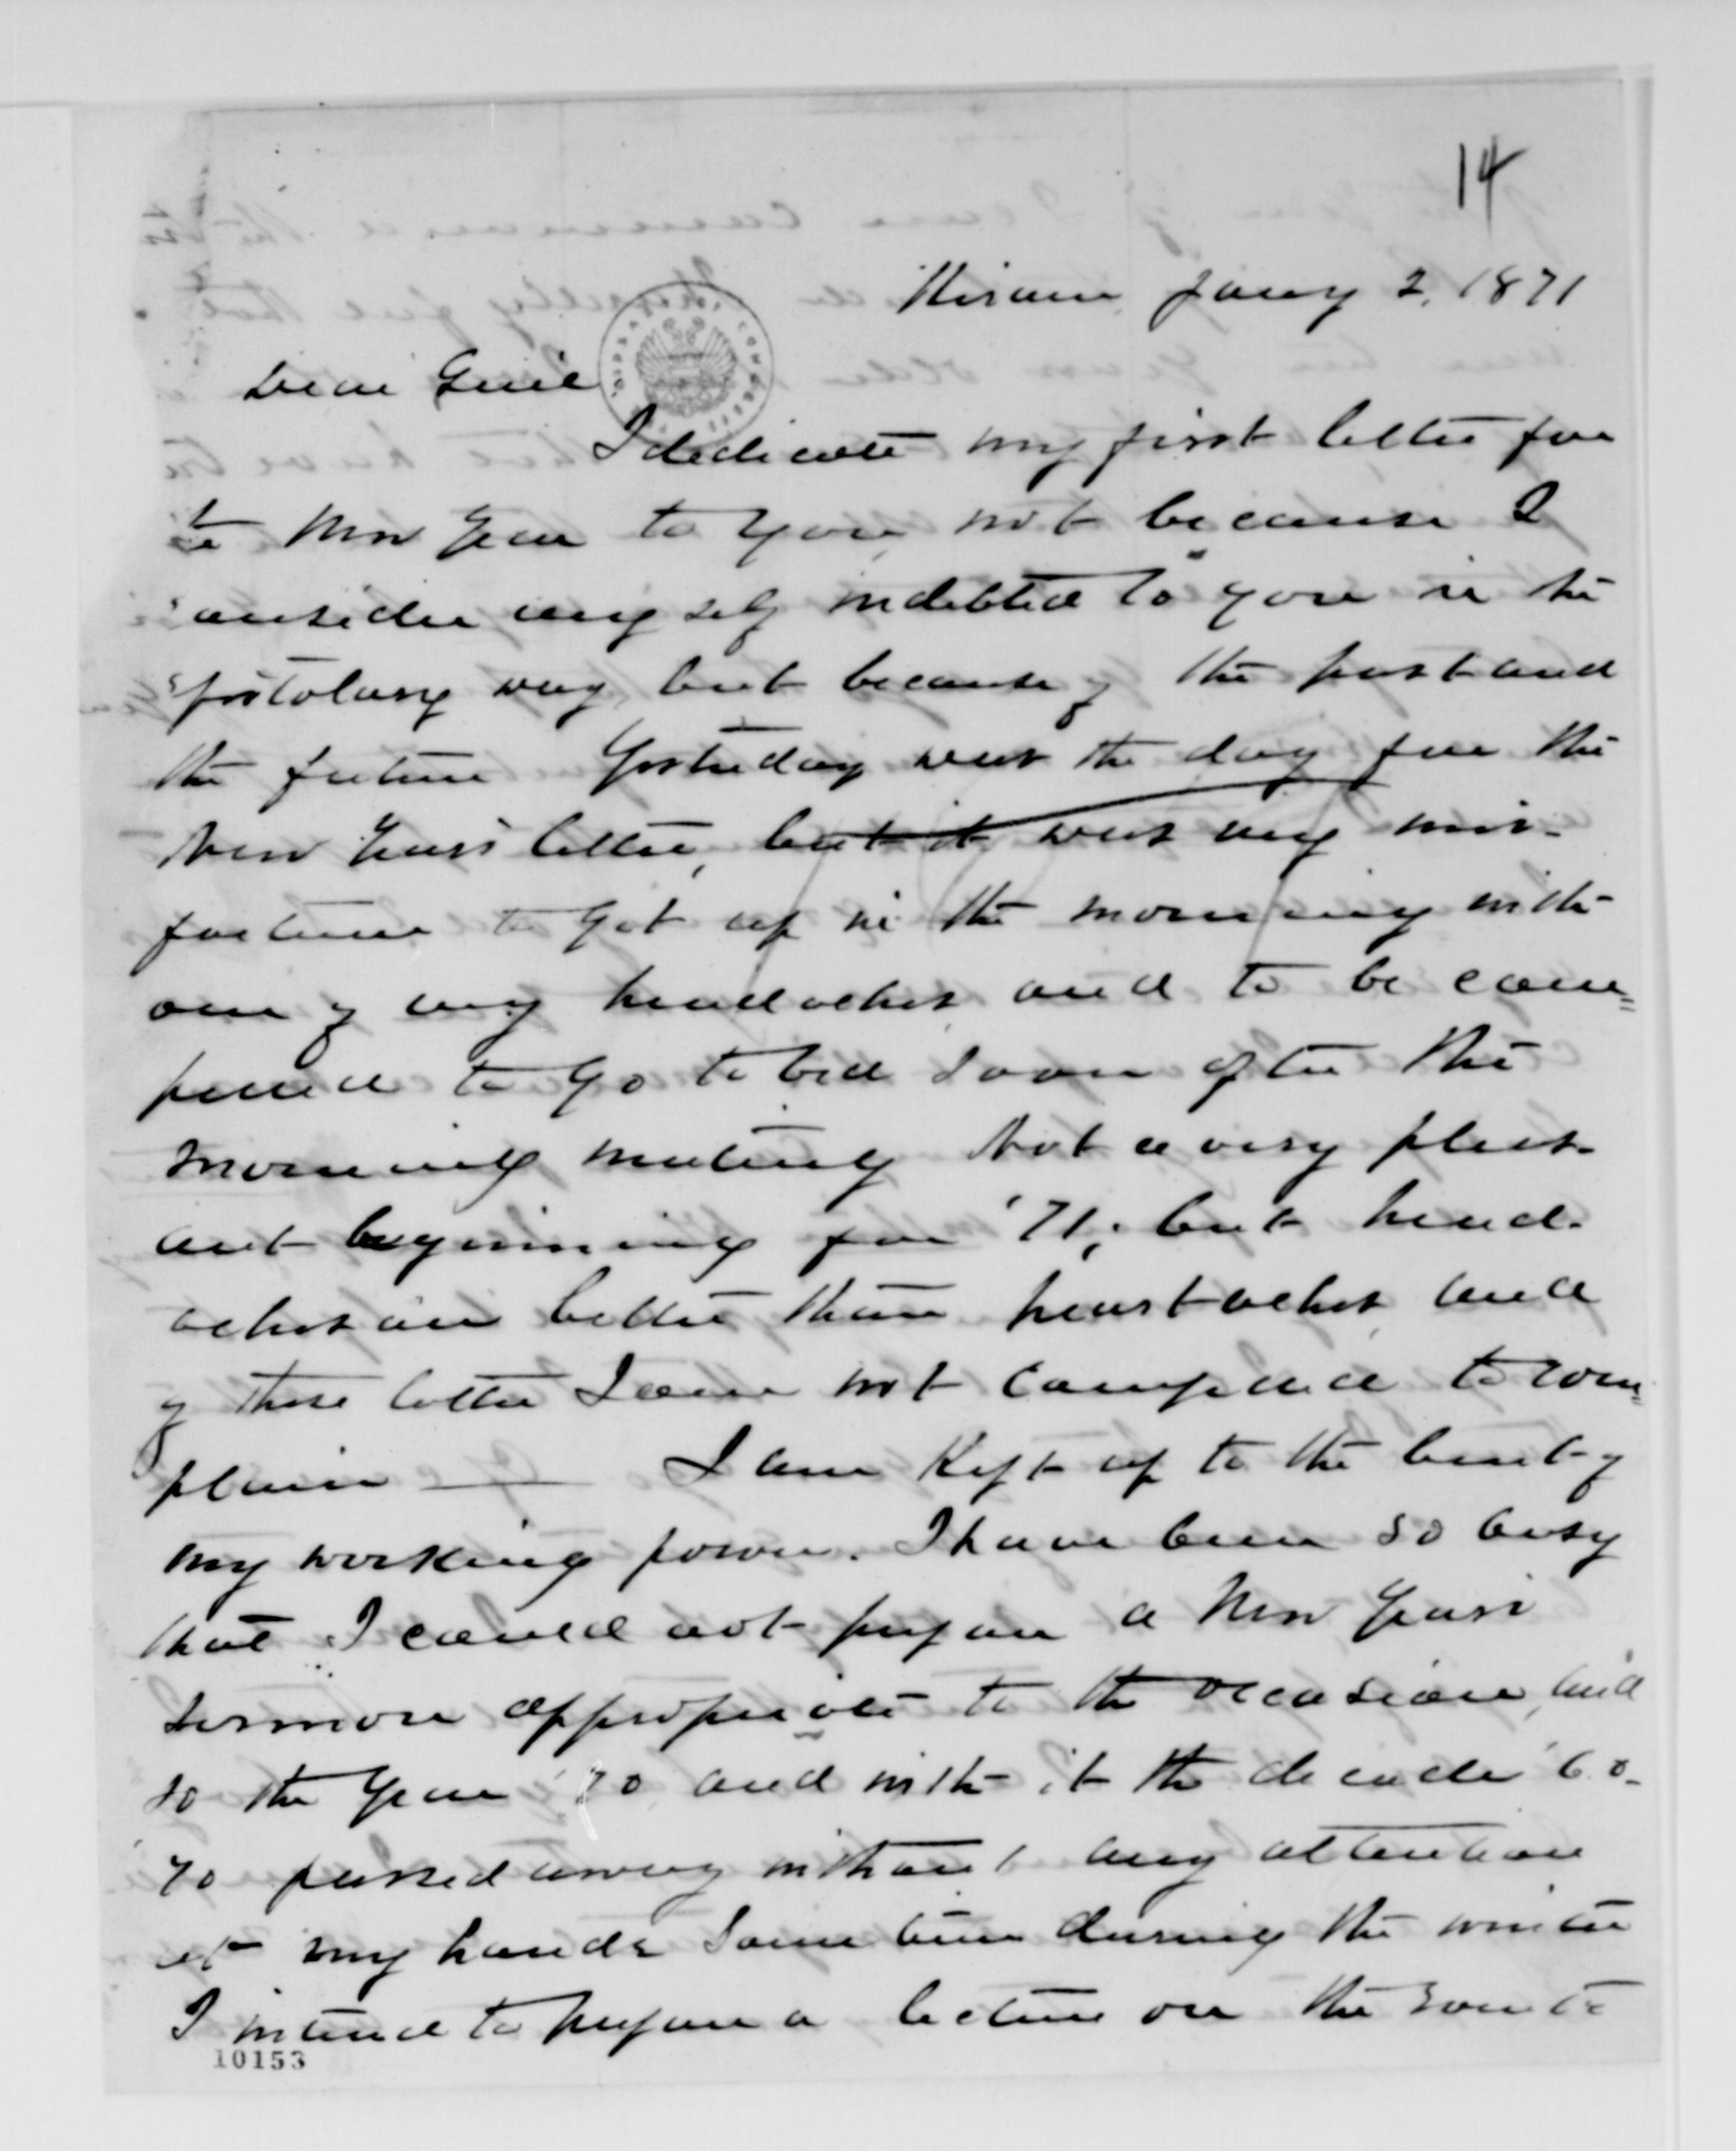 14
Hiram, Jany 2, 1871
Dear Genl
I dedicate my first letter for
the New Year to you, not because I
consider myself indebted to you in the
epistolary way, but because of the past and
the future Yesterday was the day for the
New Years letter, but it was my mis-
fortune to get up in the morning with
one of my headaches and to be com=
pelled to go to bed soon after the
morning meeting Not a very pleas-
ant beginning for '71; but head-
aches are better than heartaches, and
of these latter I am not compelled to com=
plain — I am kept up to the limit of
my working power. I have been so busy
that I could not prepare a New Years
sermon appropriate to the occasion, and
so the year '70, and with it the decade '60-
70 passed away without any attention
at my hands Some time during the winter
I intend to prepare a lecture on the
10153